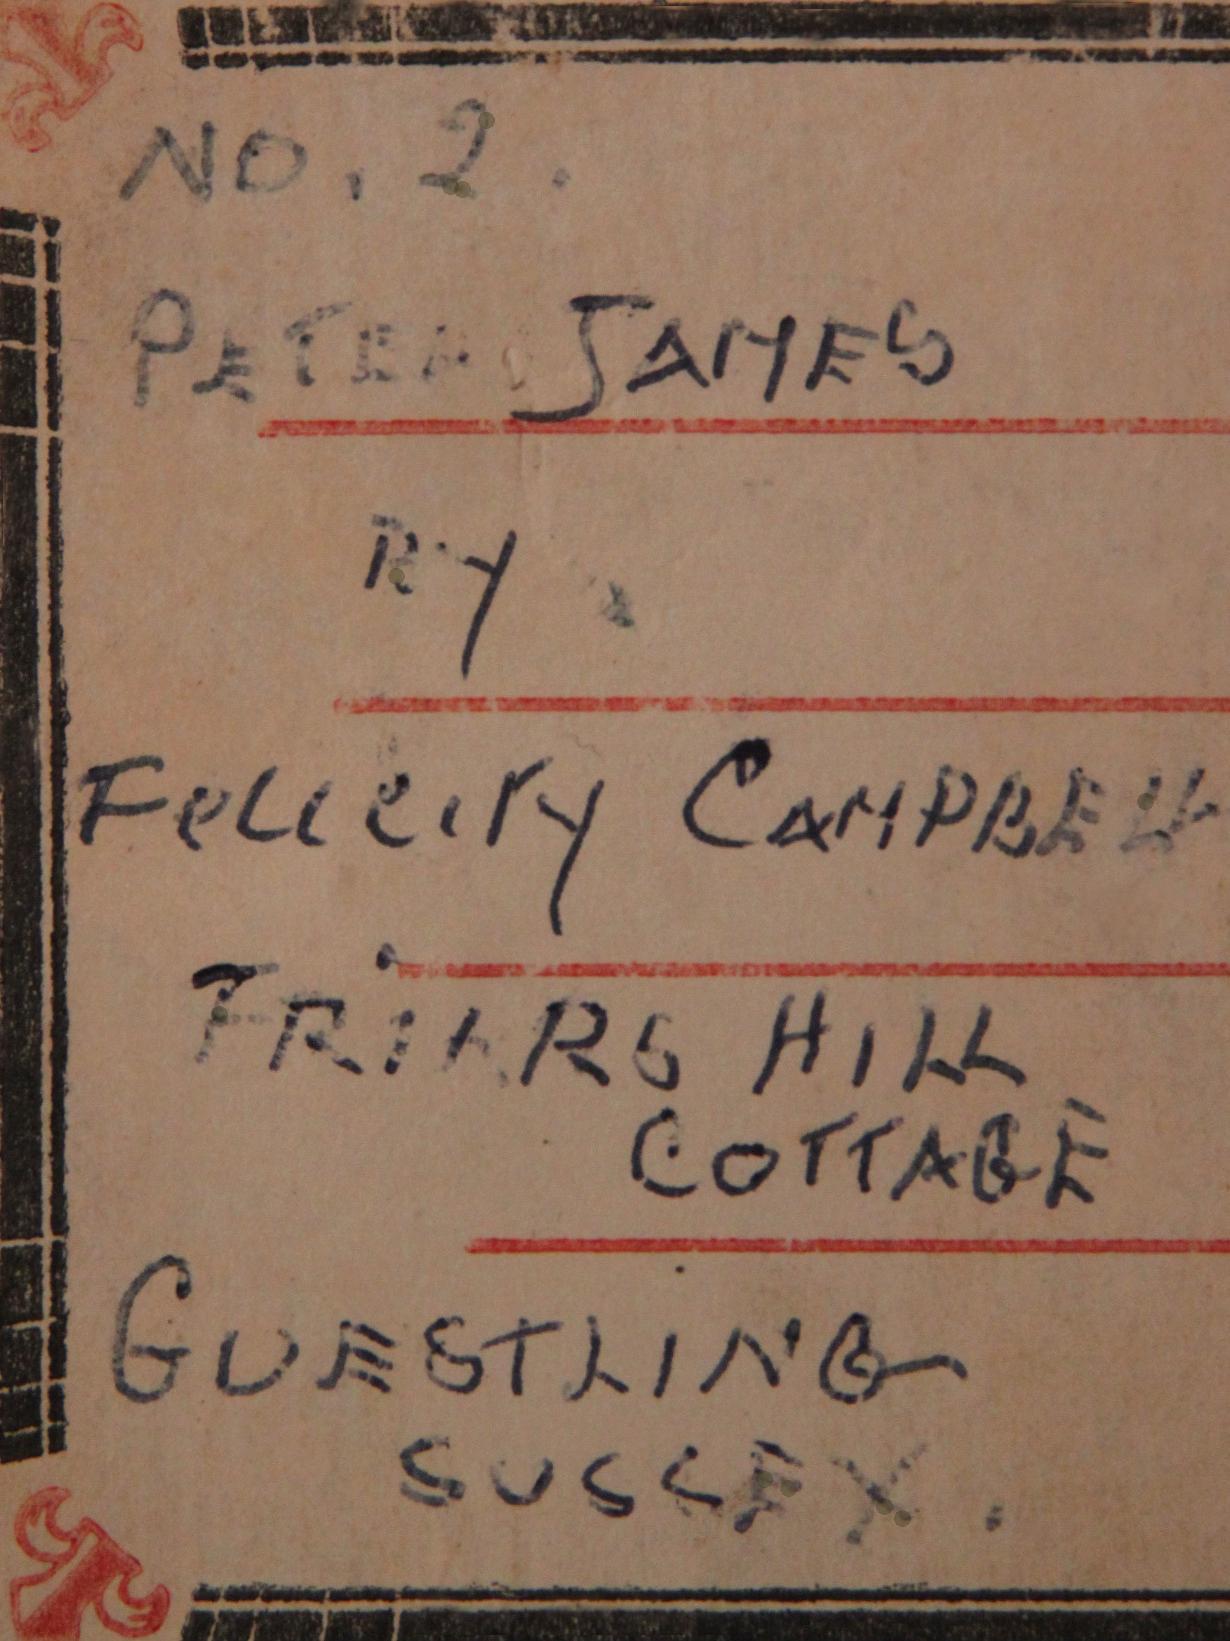 NO. 2.
PETER JAMES
BY
FELICITY CAMPBELL
FRIARS HILL
COTTAGE
GUESTLING
SUSSEX.